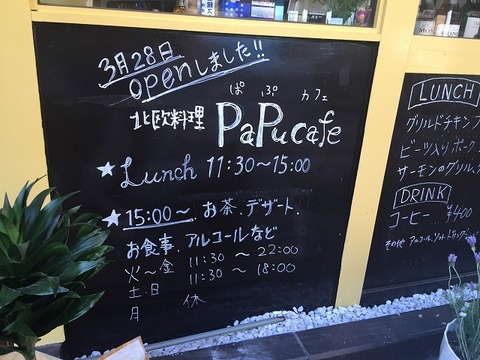 3月28日
openしました!!
ぱ ぷ カフェ
北欧料理 PaPu cafe
★ Lunch 11:30〜15:00
★ 15:00〜. お茶. デザート.
お食事. アルコールなど
火〜金 11:30 〜 22:00
土.日 11:30 〜 18:00
月 休
LUNCH
グリルドチキン
ビーツ入りポーク
サーモンのグリル
DRINK
コーヒー. ¥400
その他 アルコール.ソフトドリンク